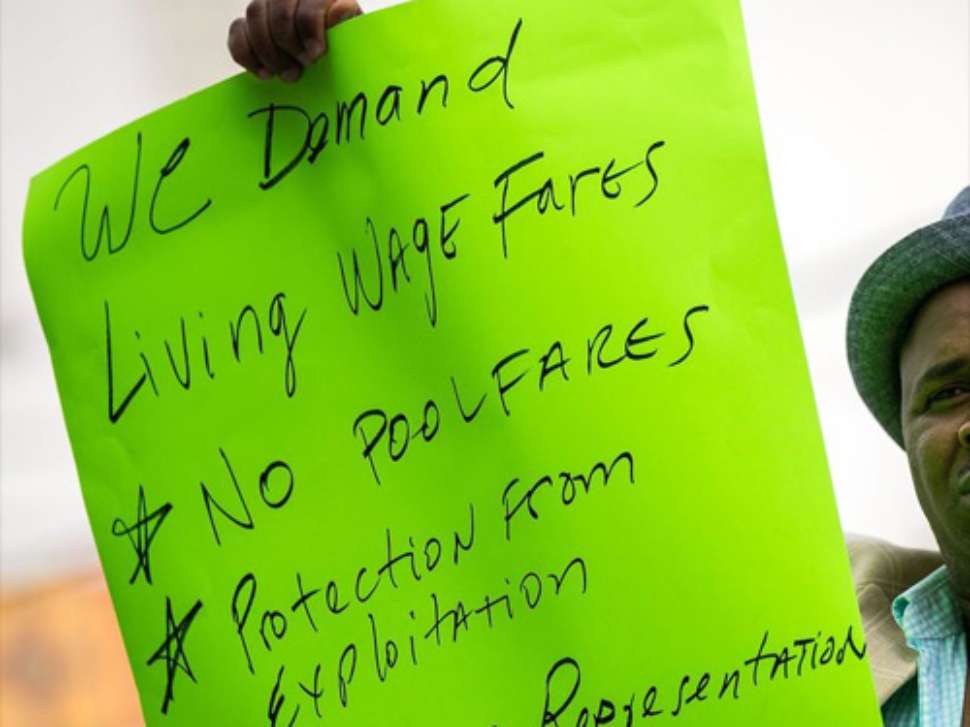 We Demand
Living WAgE Fares
★ No POOLFARES
★ Protection From
Exploitation
Representation